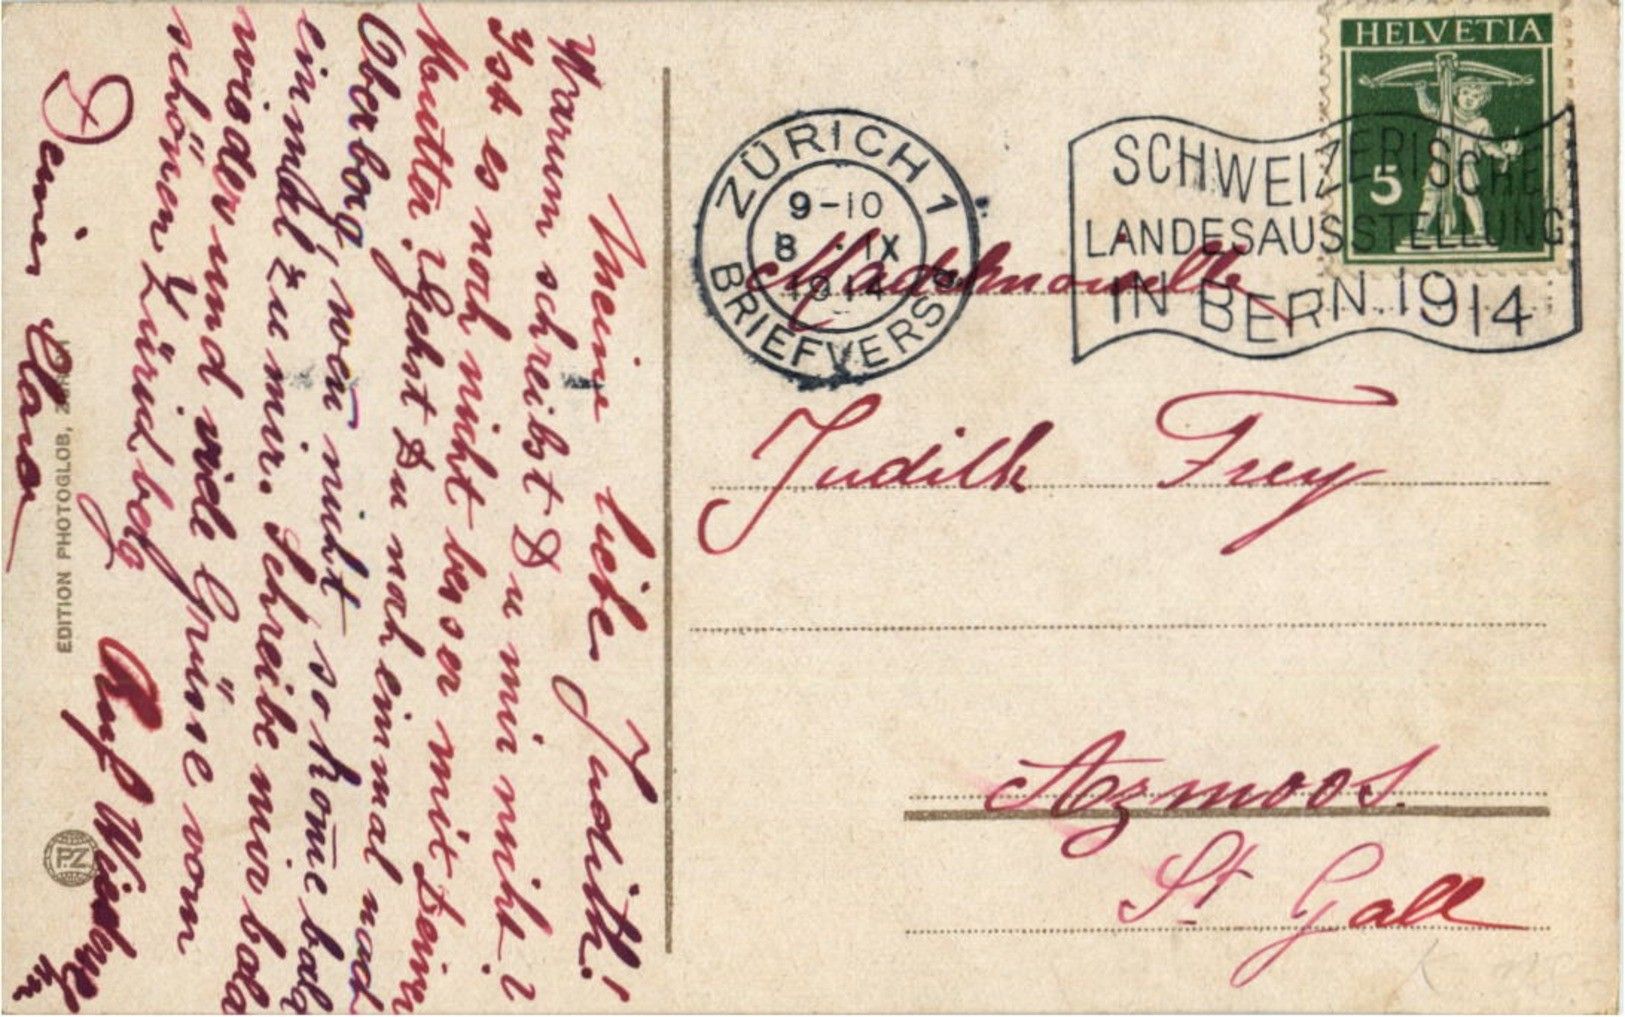 Meine liebe Judith!
Warum schreibst Du mir nicht?
Ist es noch nicht besser mit Deiner
Mutter? Gehst Du noch einmal nach
Oberberg, wen nicht so kom̄e bald
einmal zu mir. Schreibe mir bald
wieder und viele Grüsse vom
schönen Zürichberg
Auf Wiedersehn
Deine Clara
EDITION PHOTOGLOB, ZÜRICH
P.Z
ZÜRICH 1
9-10
8 IX
1914
BRIEFVERS
SCHWEIZERISCHE
LANDESAUSSTELLUNG
IN BERN.1914
HELVETIA
5
Mademoiselle
Judith Frey
Azmoos.
St Gall